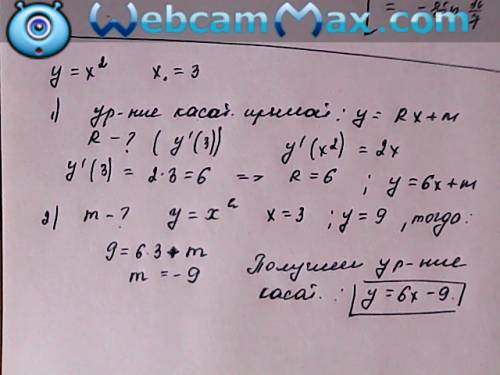 WebcamMax.com
y = x² x₀ = 3
1) ур-ние касат. прямой: y = Rx + m
R - ? (y'(3)) y'(x²) = 2x
y'(3) = 2·3 = 6 => R = 6 ; y = 6x + m
2) m - ? y = x² x = 3 ; y = 9 , тогда:
9 = 6·3 + m
m = -9
Получаем ур-ние
касат.: y = 6x - 9.